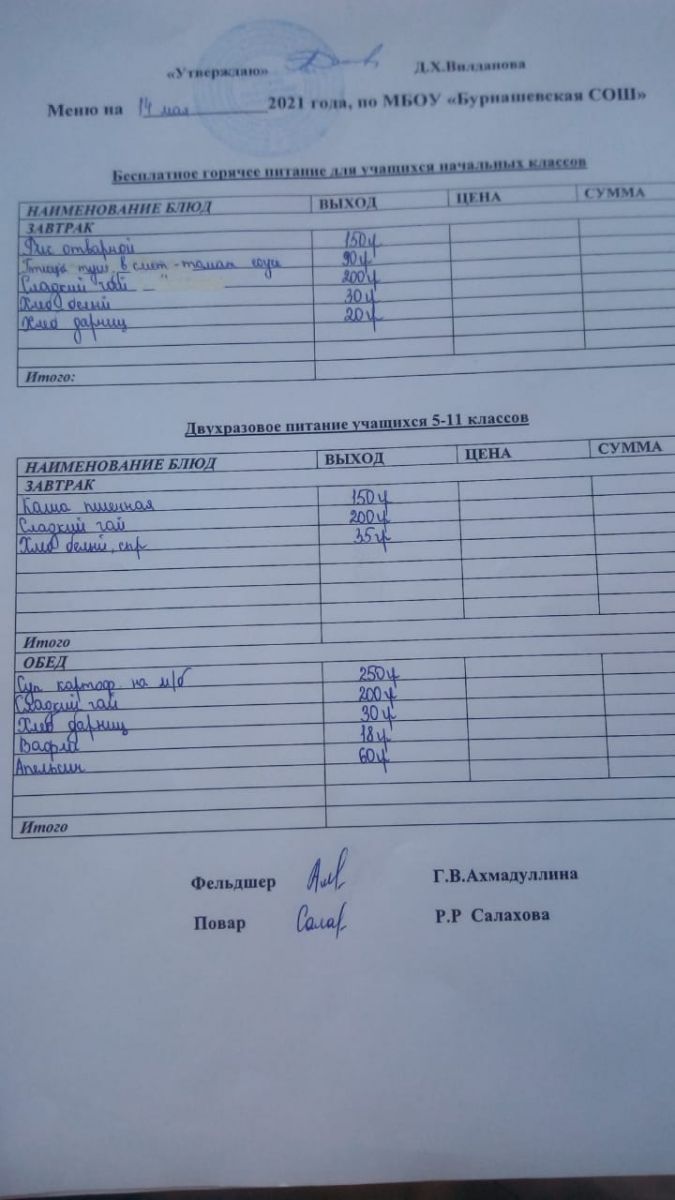 «Утверждаю» Д.Х.Вилданова
Меню на 14 мая 2021 года, по МБОУ «Бурнашевская СОШ»
Бесплатное горячее питание для учащихся начальных классов
НАИМЕНОВАНИЕ БЛЮД ВЫХОД ЦЕНА СУММА
ЗАВТРАК
Рис отварной 150г
Птица туш. в смет-томат соусе 90г
Сладкий чай 200г
Хлеб белый 30г
Хлеб дарниц 20г
Итого:
Двухразовое питание учащихся 5-11 классов
НАИМЕНОВАНИЕ БЛЮД ВЫХОД ЦЕНА СУММА
ЗАВТРАК
Каша пшенная 150г
Сладкий чай 200г
Хлеб белый, сыр 35г
Итого
ОБЕД
Суп картоф на м/б 250г
Сладкий чай 200г
Хлеб дарниц 30г
Вафли 18г
Апельсин 60г
Итого
Фельдшер Г.В.Ахмадуллина
Повар Р.Р Салахова